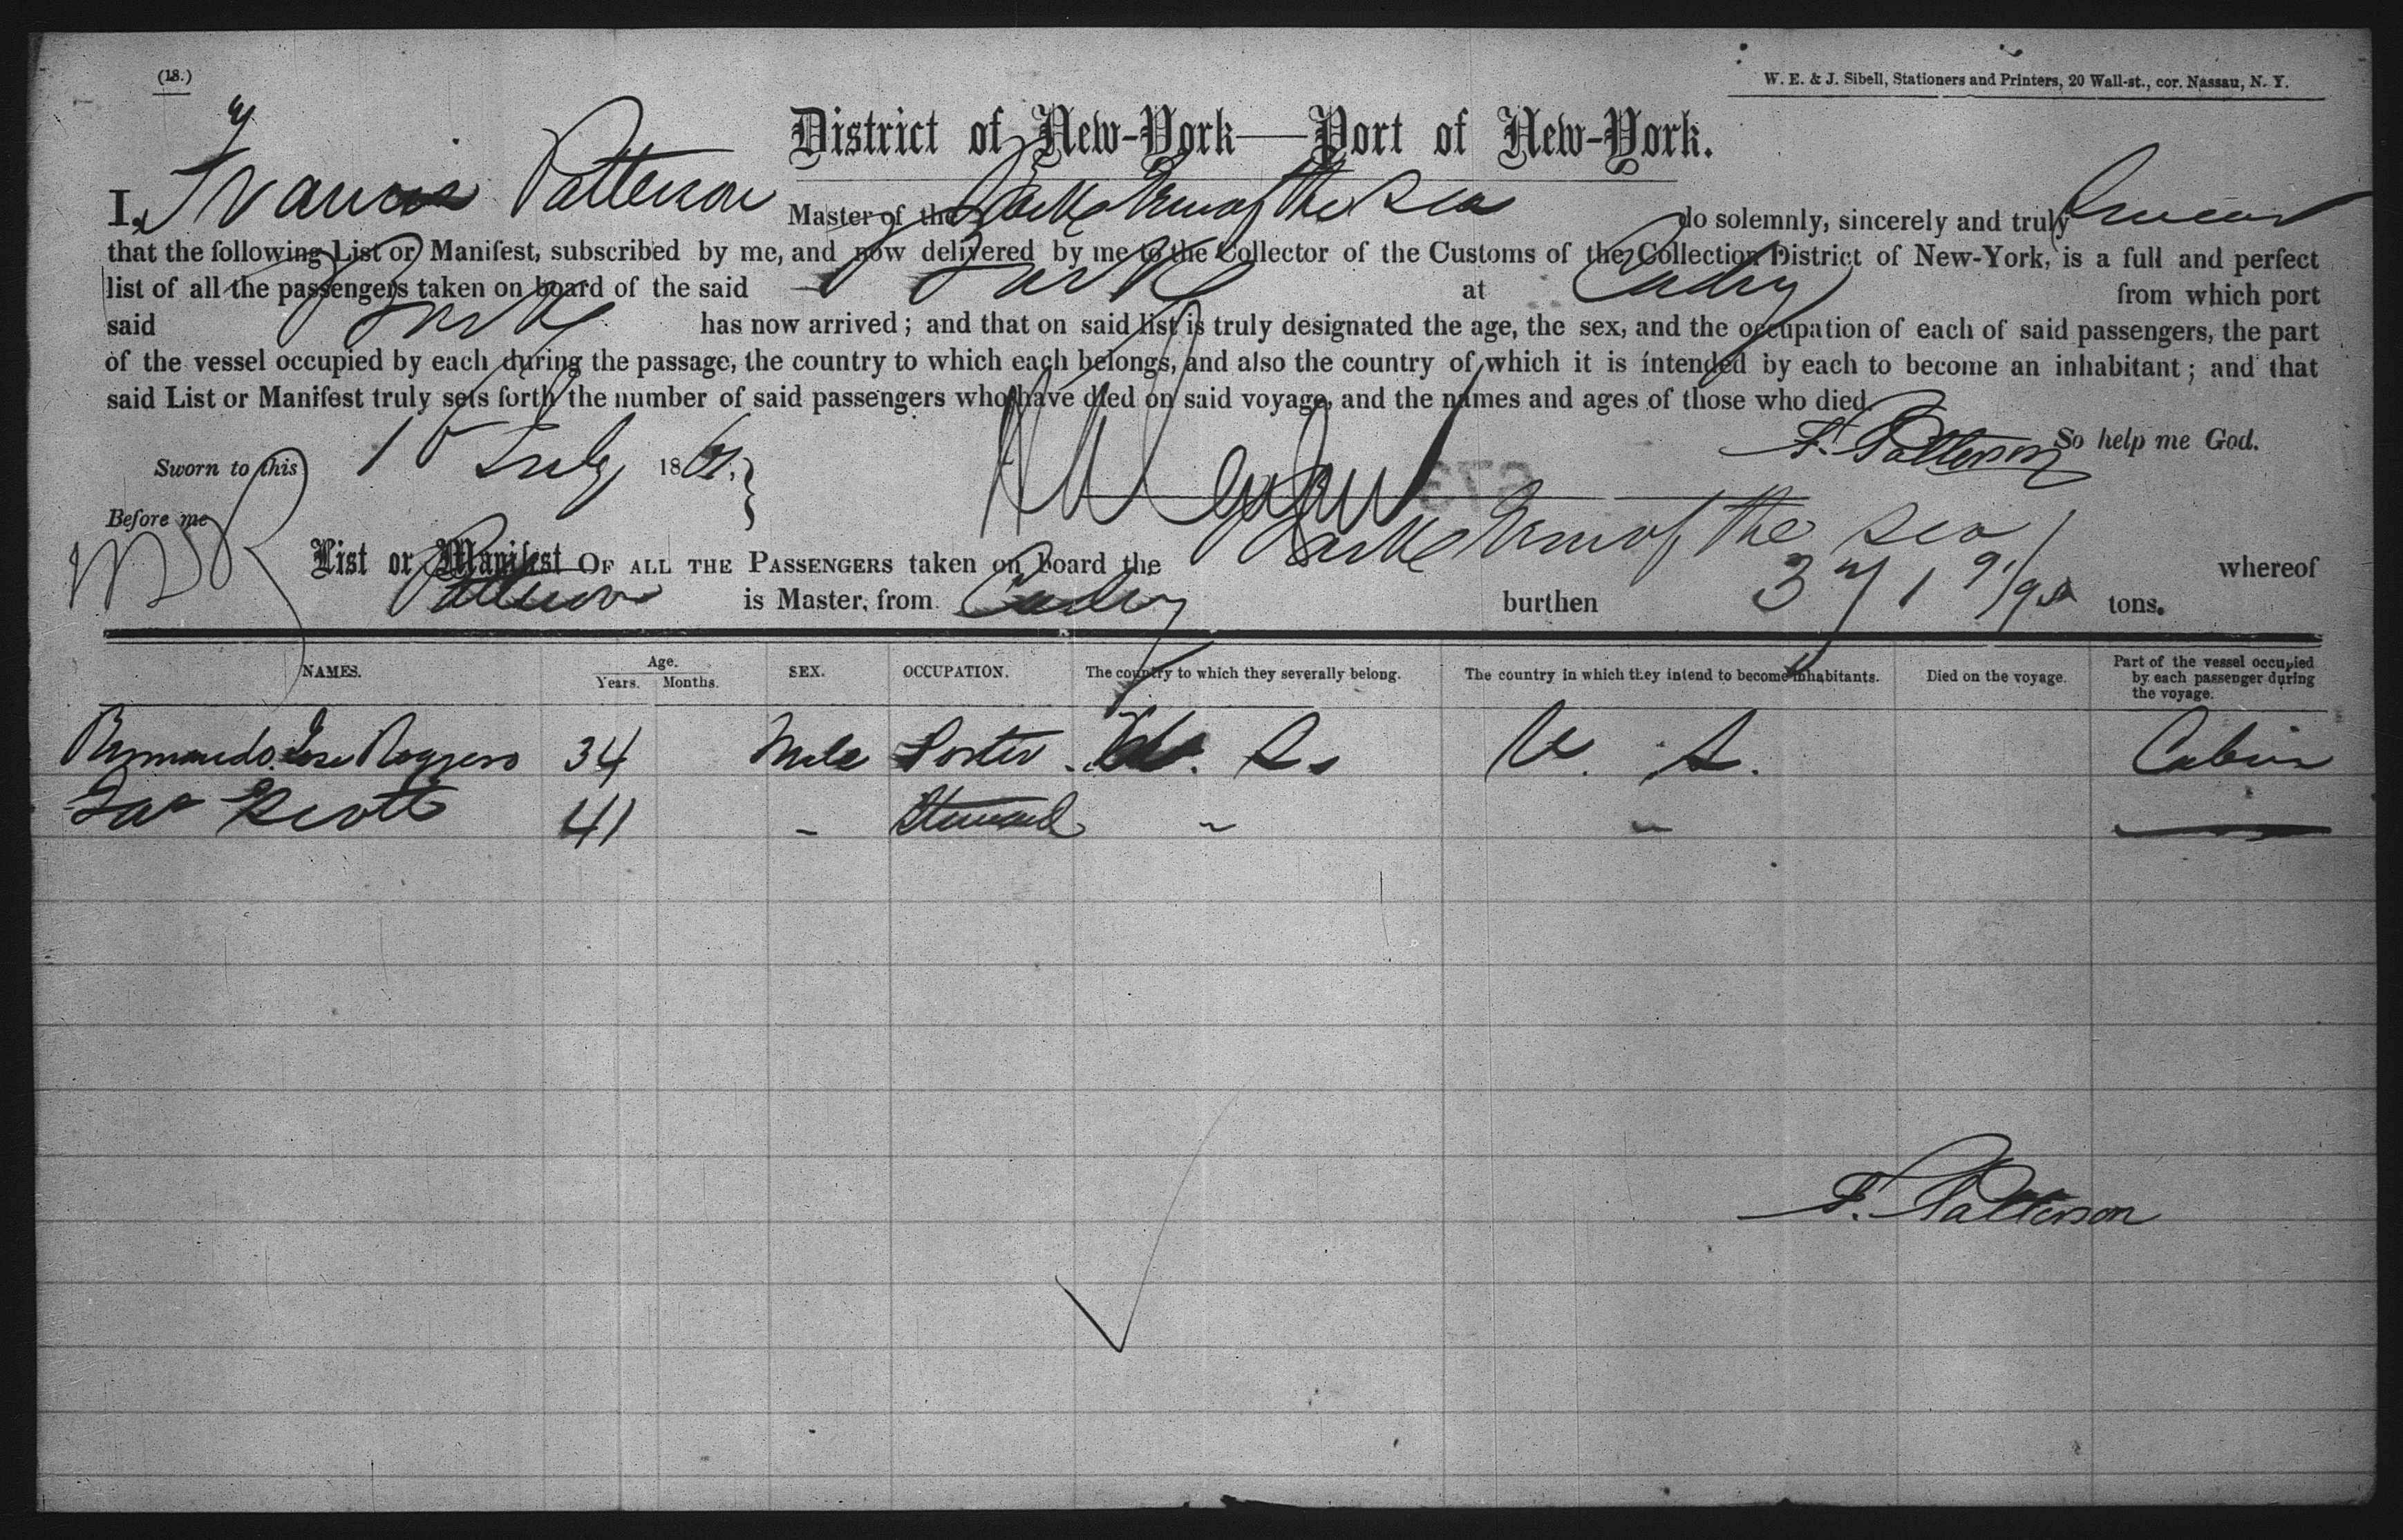 (18.)
W. E. & J. Sibell, Stationers and Printers, 20 Wall-st., cor. Nassau, N. Y.
District of New-York—Port of New-York.
I, Francis Patterson Master of the Bark Gem of the Sea do solemnly, sincerely and truly swear
that the following List or Manifest, subscribed by me, and now delivered by me to the Collector of the Customs of the Collection District of New-York, is a full and perfect
list of all the passengers taken on board of the said Bark at Cadiz from which port
said Bark has now arrived; and that on said list is truly designated the age, the sex, and the occupation of each of said passengers, the part
of the vessel occupied by each during the passage, the country to which each belongs, and also the country of which it is intended by each to become an inhabitant; and that
said List or Manifest truly sets forth the number of said passengers who have died on said voyage, and the names and ages of those who died.
F. Patterson So help me God.
Sworn to this July 1861.
Before me
List or Manifest OF ALL THE PASSENGERS taken on board the Bark Gem of the Sea whereof
Patterson is Master, from Cadiz burthen 371 91/95 tons.
NAMES. Age. Years. Months. SEX. OCCUPATION. The country to which they severally belong. The country in which they intend to become inhabitants. Died on the voyage. Part of the vessel occupied by each passenger during the voyage.
Jose 34 Male Porter U. S. U. S. Cabin
Jas Scott 41 - Steward " "
F. Patterson